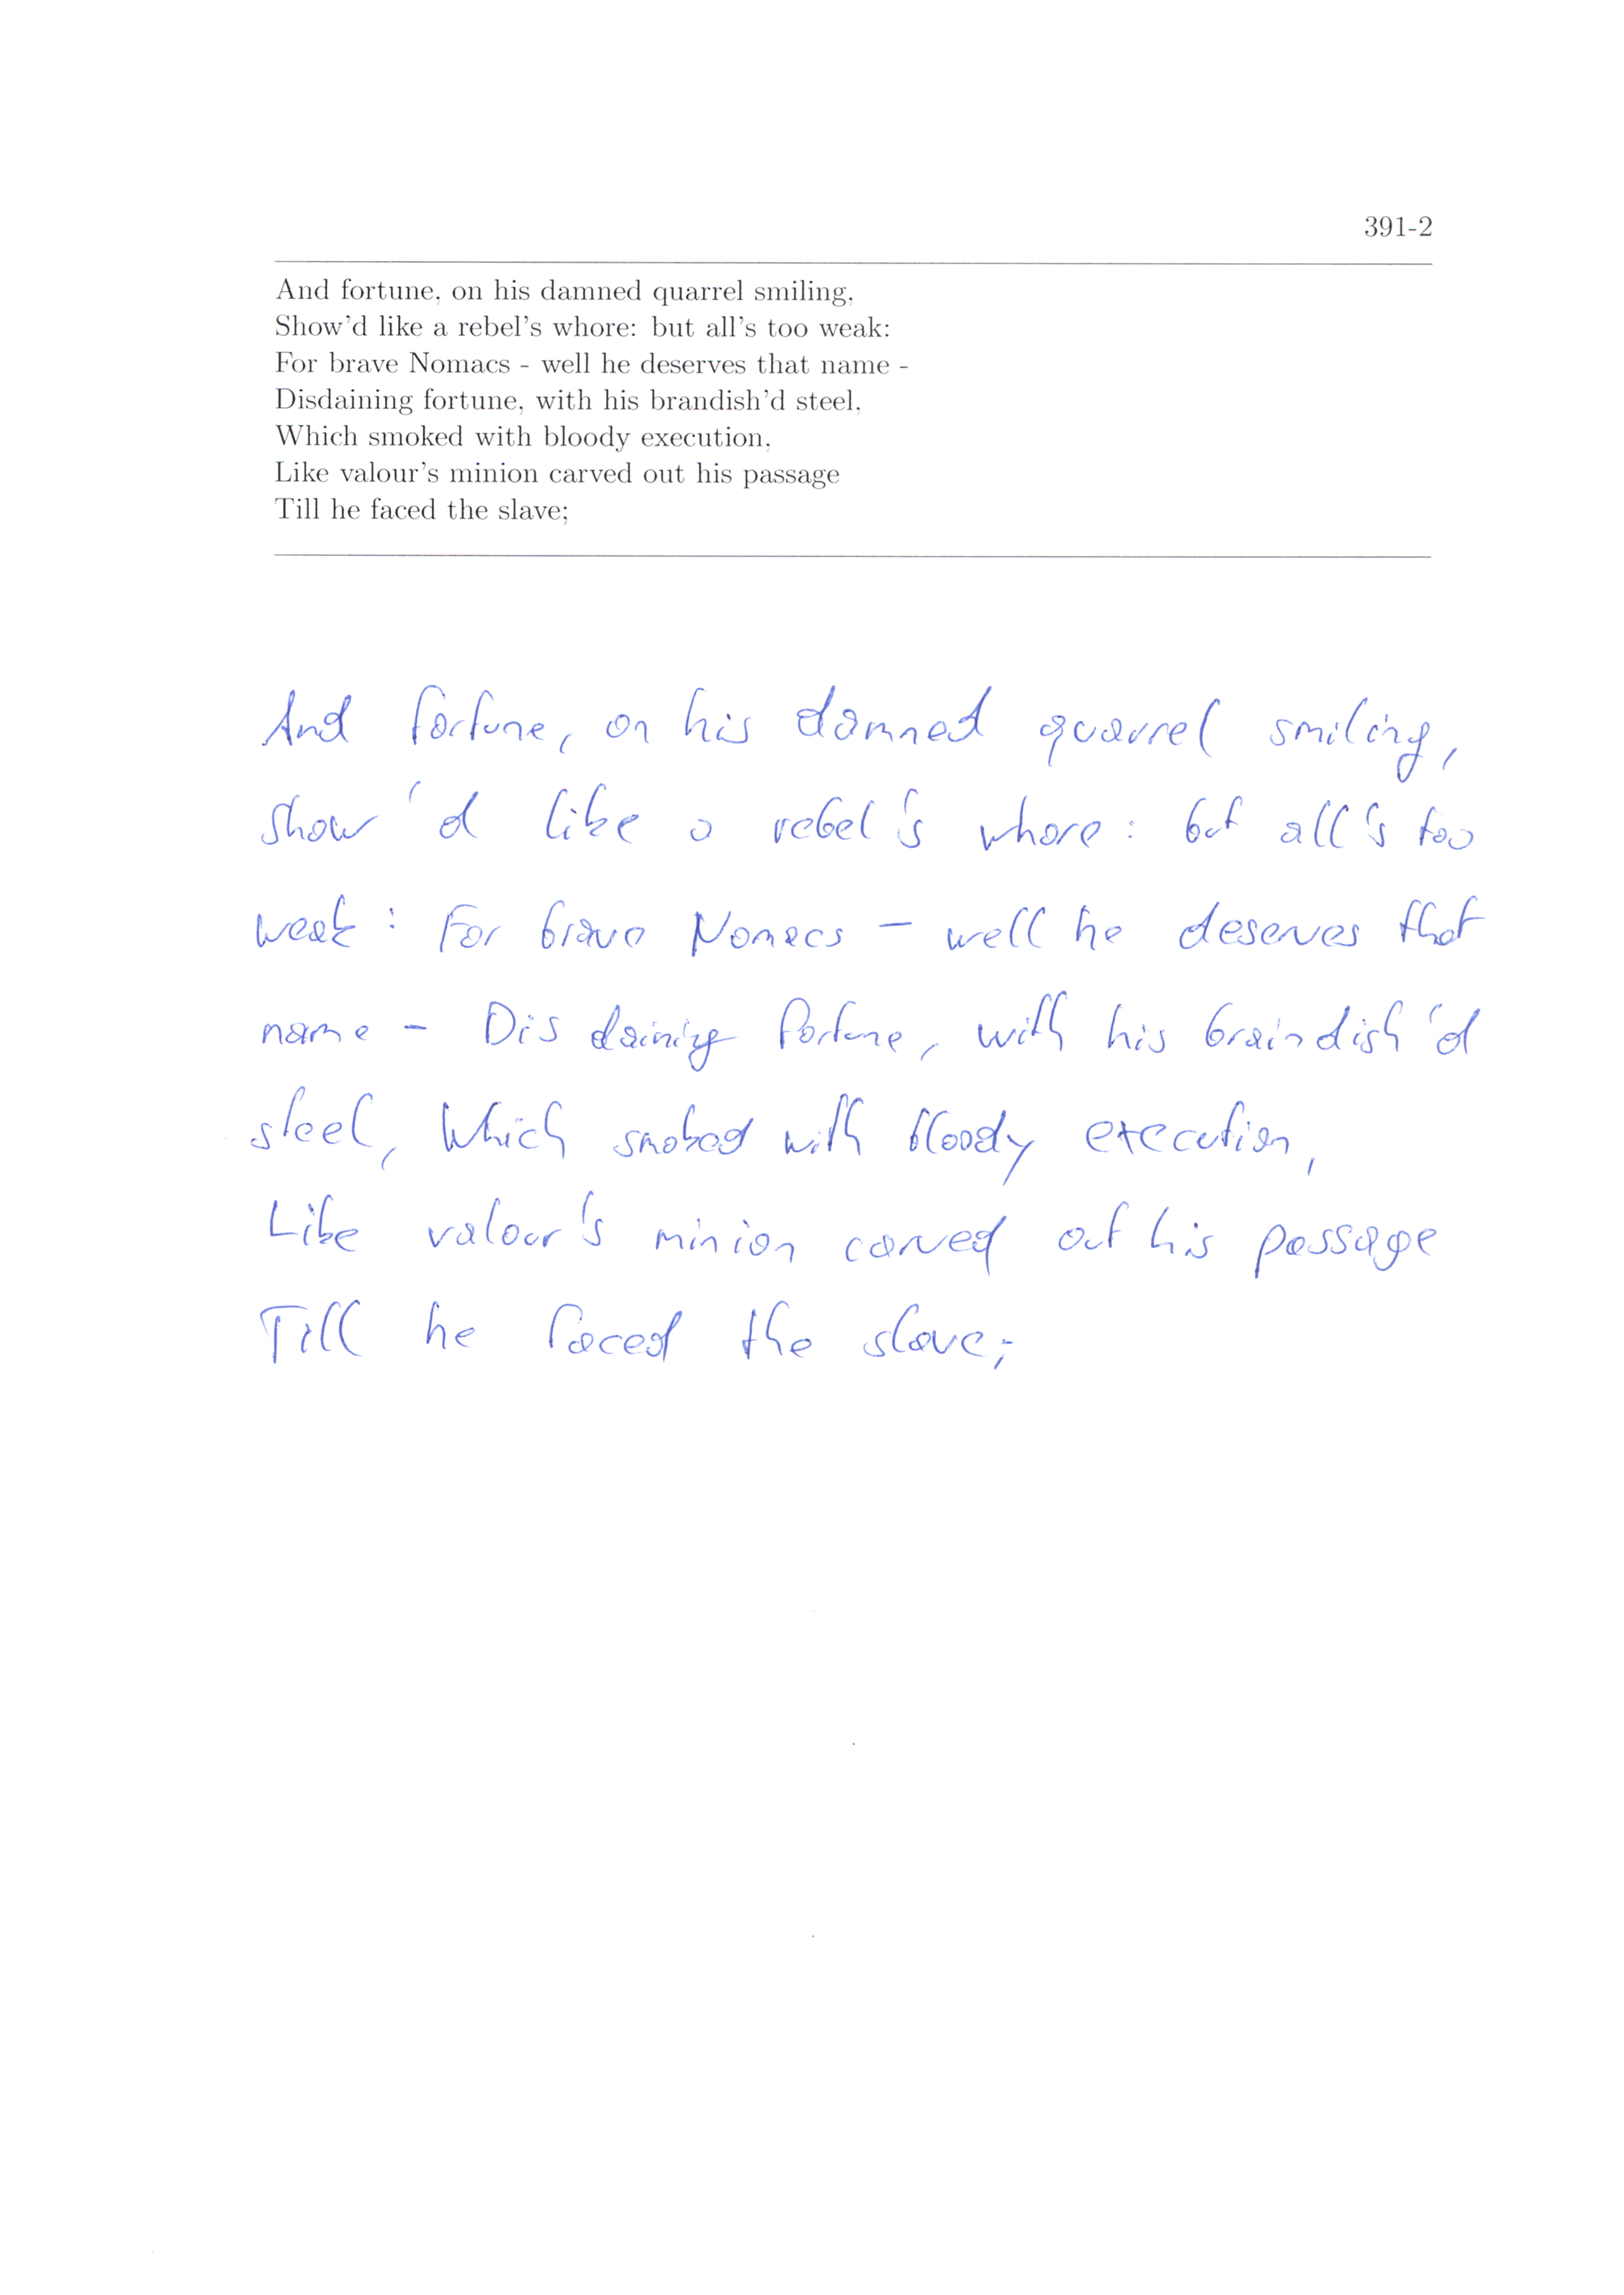 391-2
And fortune, on his damned quarrel smiling,
Show'd like a rebel's whore: but all's too weak:
For brave Nomacs - well he deserves that name -
Disdaining fortune, with his brandish'd steel,
Which smoked with bloody execution,
Like valour's minion carved out his passage
Till he faced the slave;
And fortune, on his damned quarrel smiling,
Show'd like a rebel's whore: but all's too
weak: For brave Nomacs - well he deserves that
name - Disdaining fortune, with his braindish'd
steel, Which smoked with bloody execution,
Like valour's minion carved out his passage
Till he faced the slave;